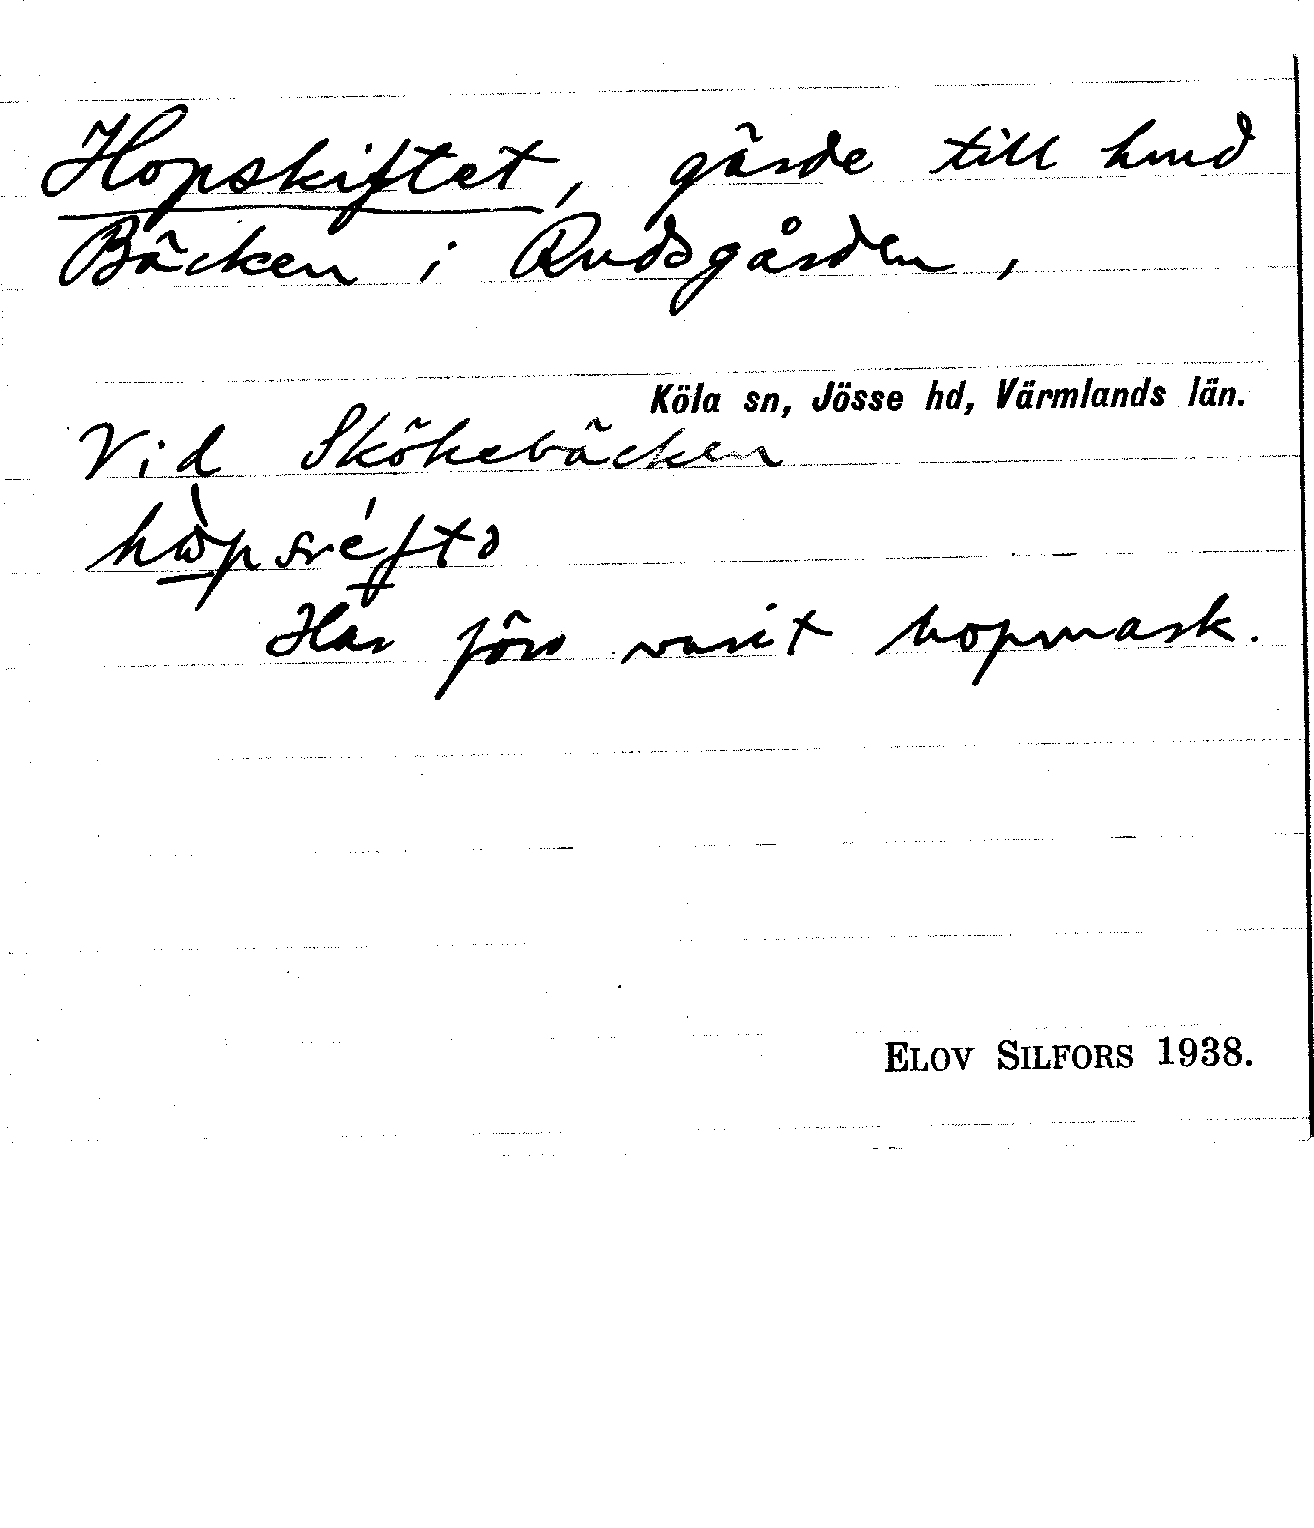 Hopskiftet, gärde till hmd
Bäcken i Rudsgården,
Köla sn, Jösse hd, Värmlands län.
Vid Skökebäcken
Har förr varit hopmark.
ELOV SILFORS 1938.